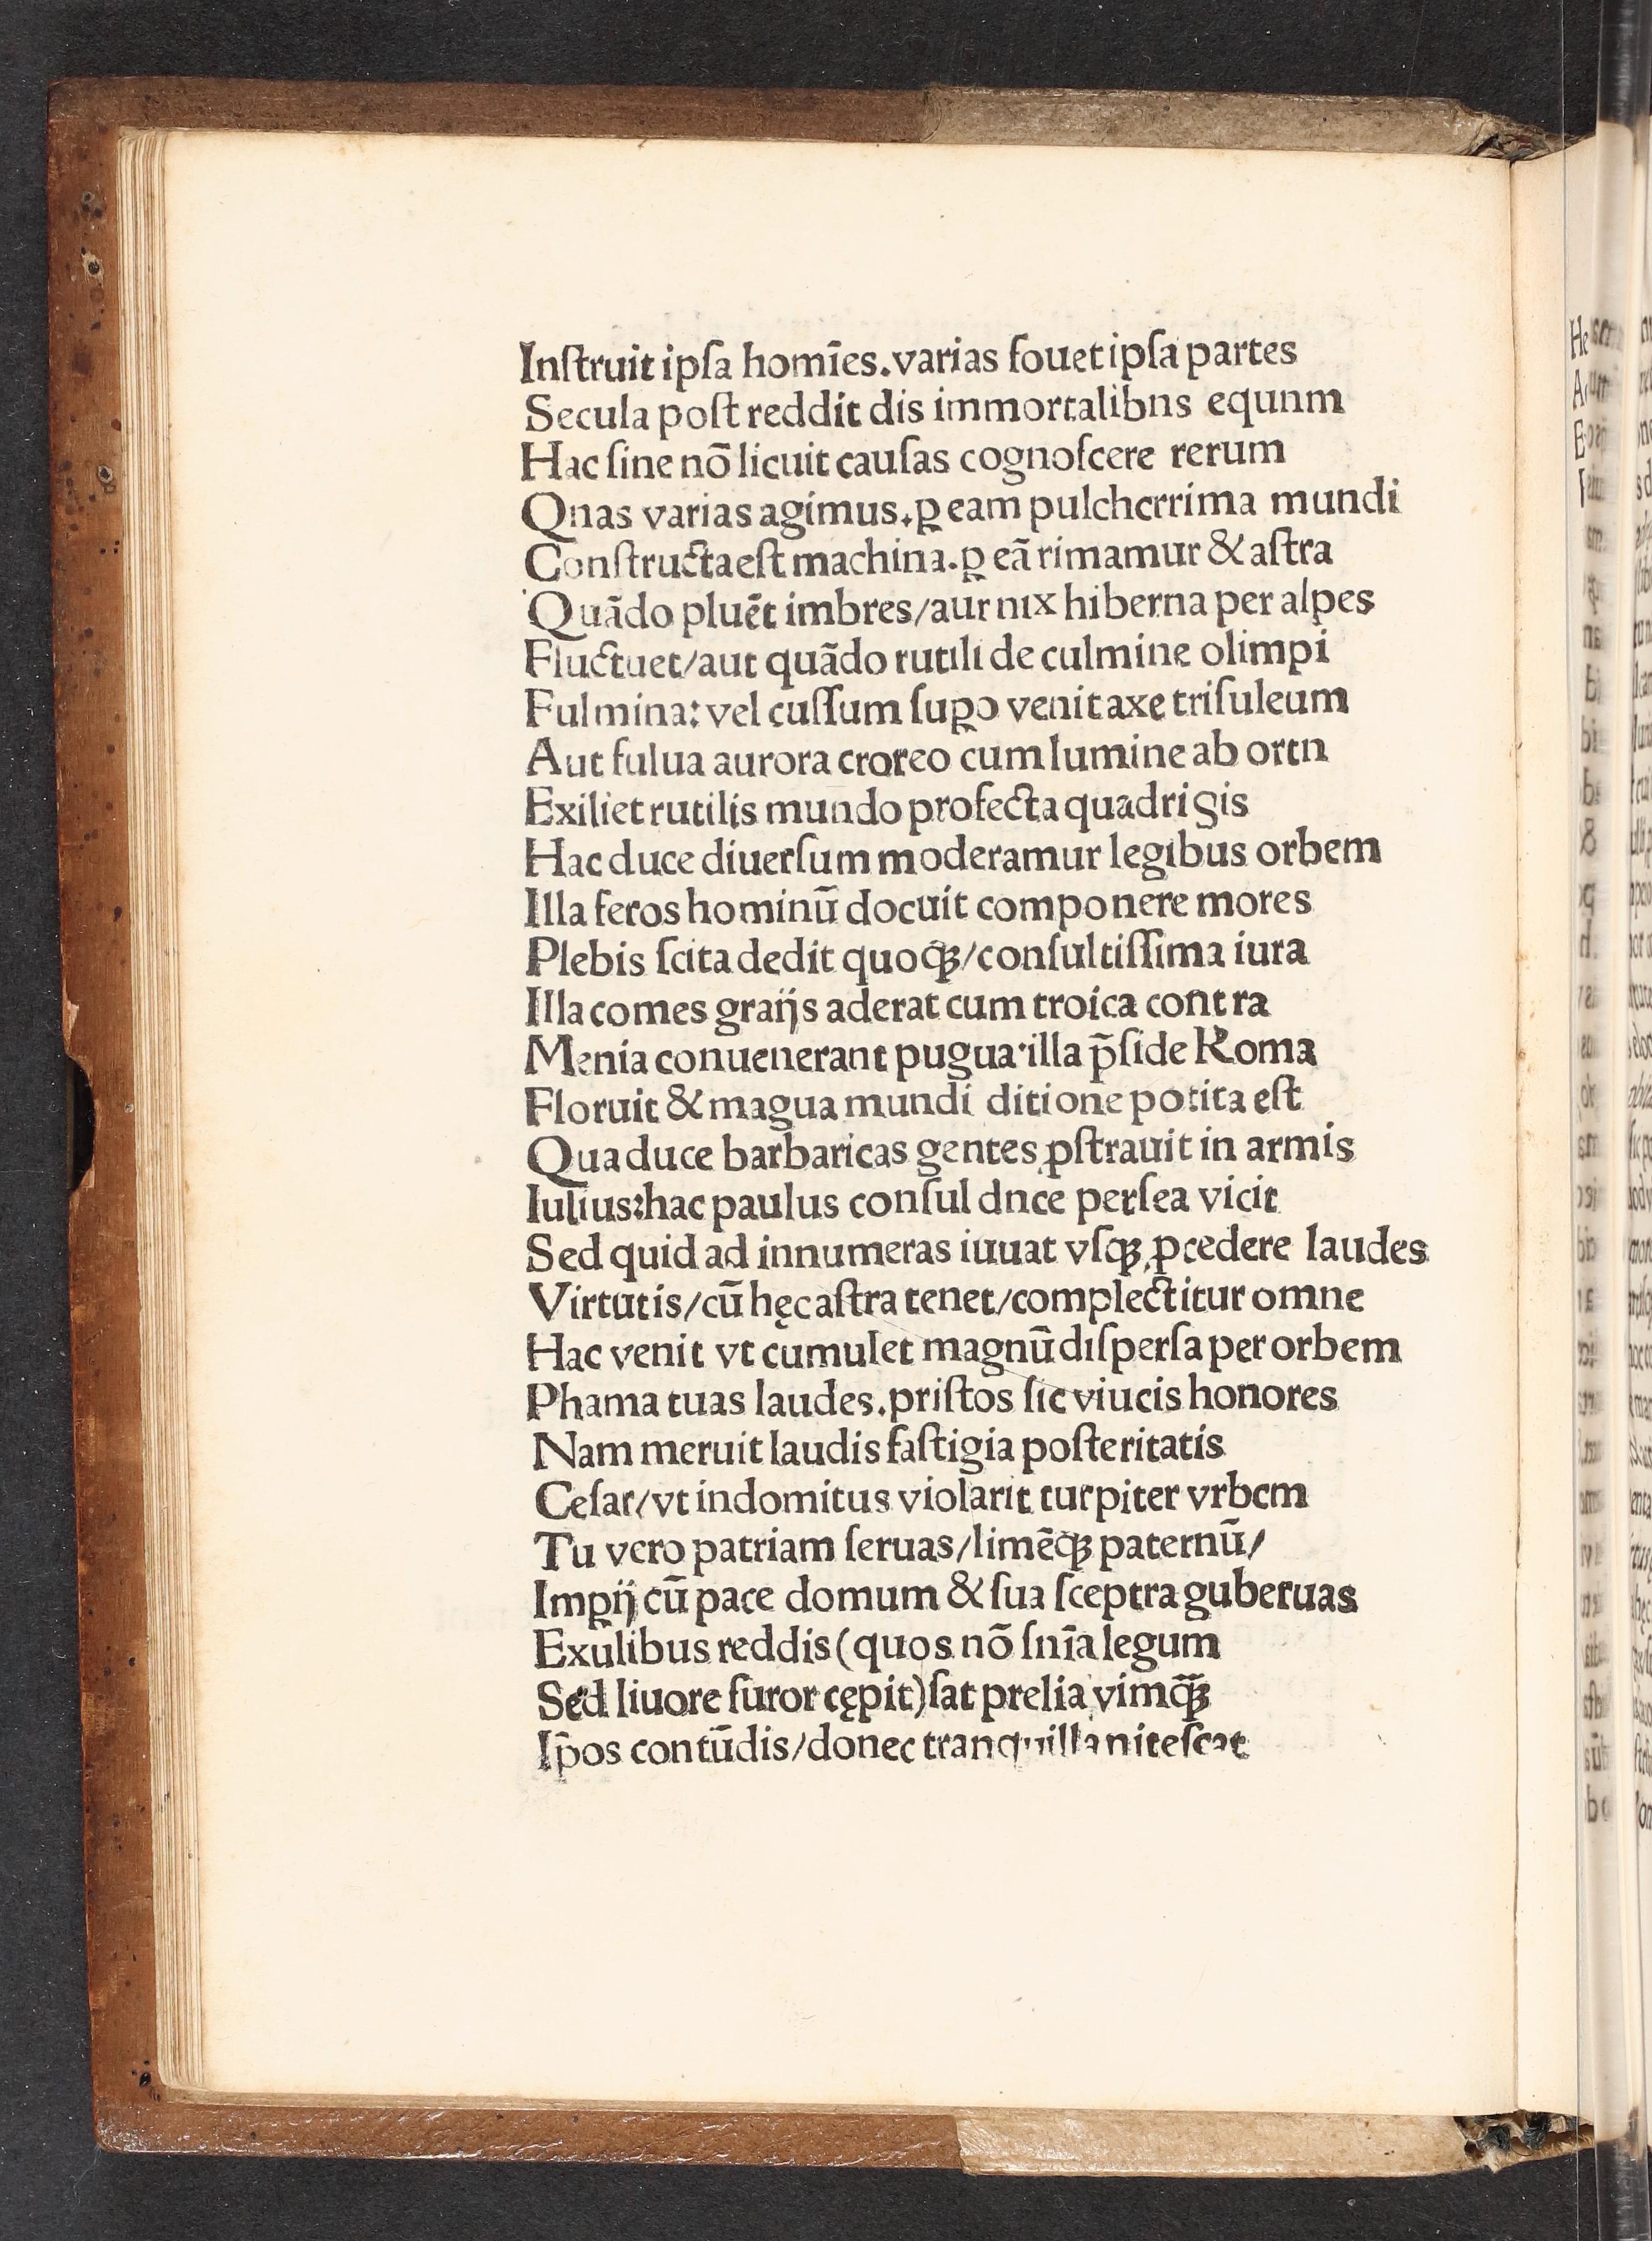 Inſtruit ipſa homīes.varias fouet ipſa partes
Secula poſt reddit dis immortalibns equnm
Hac ſine nō licuit cauſas cognoſcere rerum
Qnas varias agimus.ꝑ eam pulcherrima mundi
Conſtructa eſt machina.ꝑ eā rimamur & aſtra
Quādo pluēt imbres/aut nix hiberna per alpes
Fluctuet/aut quādo rutili de culmine olimpi
Fulmina: vel cuſſum ſuꝑo venit axe triſuleum
Aut fulua aurora croreo cum lumine ab ortn
Exiliet rutilis mundo profecta quadrigis
Hac duce diuerſum moderamur legibus orbem
Illa feros hominū docuit componere mores
Plebis ſcita dedit quoqꝫ/conſultiſſima iura
Illa comes graijs aderat cum troica contra
Menia conuenerant pugua·illa p̄ſide Roma
Floruit & magua mundi ditione potita eſt
Qua duce barbaricas gentes ꝓſtrauit in armis
Iulius:hac paulus conſul dnce perſea vicit
Sed quid ad innumeras iuuat vſqꝫ ꝓcedere laudes
Virtutis/cū hęc aſtra tenet/complectitur omne
Hac venit vt cumulet magnū diſperſa per orbem
Phama tuas laudes.priſtos ſic viucis honores
Nam meruit laudis faſtigia poſteritatis
Ceſar/vt indomitus violarit turpiter vrbem
Tu vero patriam ſeruas/limēqꝫ paternū/
Impij cū pace domum & ſua ſceptra guberuas
Exulibus reddis(quos nō ſnīa legum
Sed liuore furor cępit)ſat prelia vimqꝫ
Ip̄os contūdis/donec tranquilla niteſcat